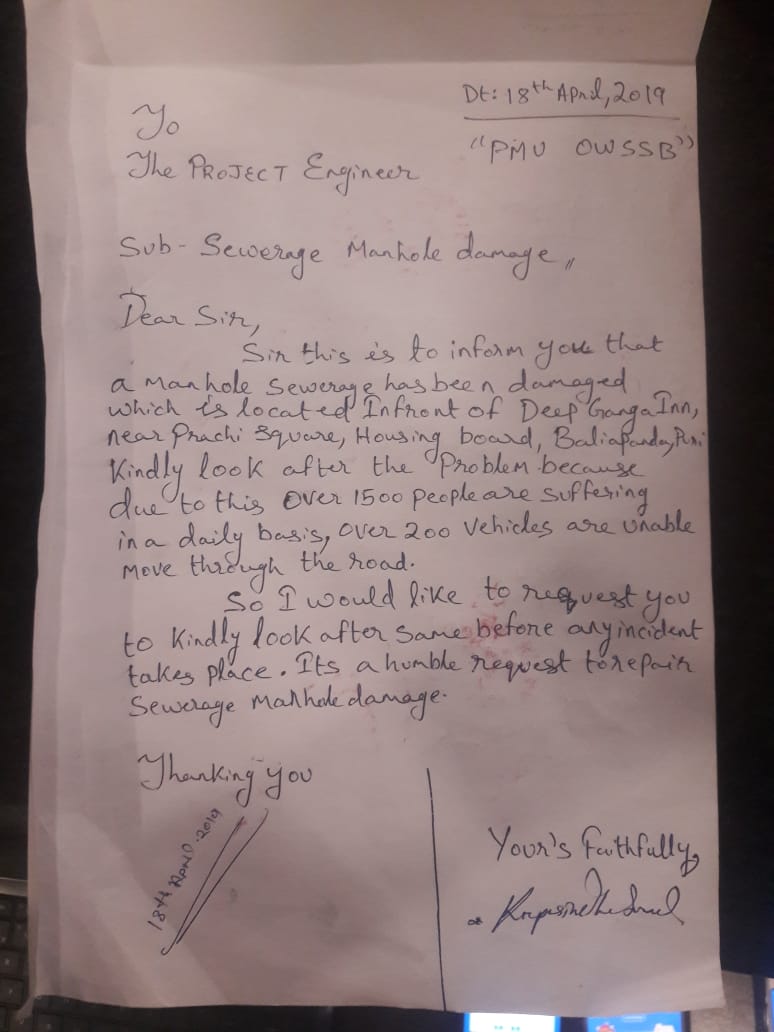 Dt: 18th April, 2019
To
"PMU OWSSB"
The PROJECT Engineer
Sub- Sewerage Manhole damage,,
Dear Sir,
Sir this is to inform you that
a Manhole Sewerage has been damaged
which is located Infront of Deep Ganga Inn,
near Prachi Square, Housing board, Baliapanda, Puri
Kindly look after the Problem because
due to this over 1500 people are suffering
in a daily basis, over 200 Vehicles are unable
move through the road.
So I would like to request you
to kindly look after same before any incident
takes place. Its a humble request to repair
Sewerage Manhole damage.
Thanking you
18th April 2019
Your's Faithfully,